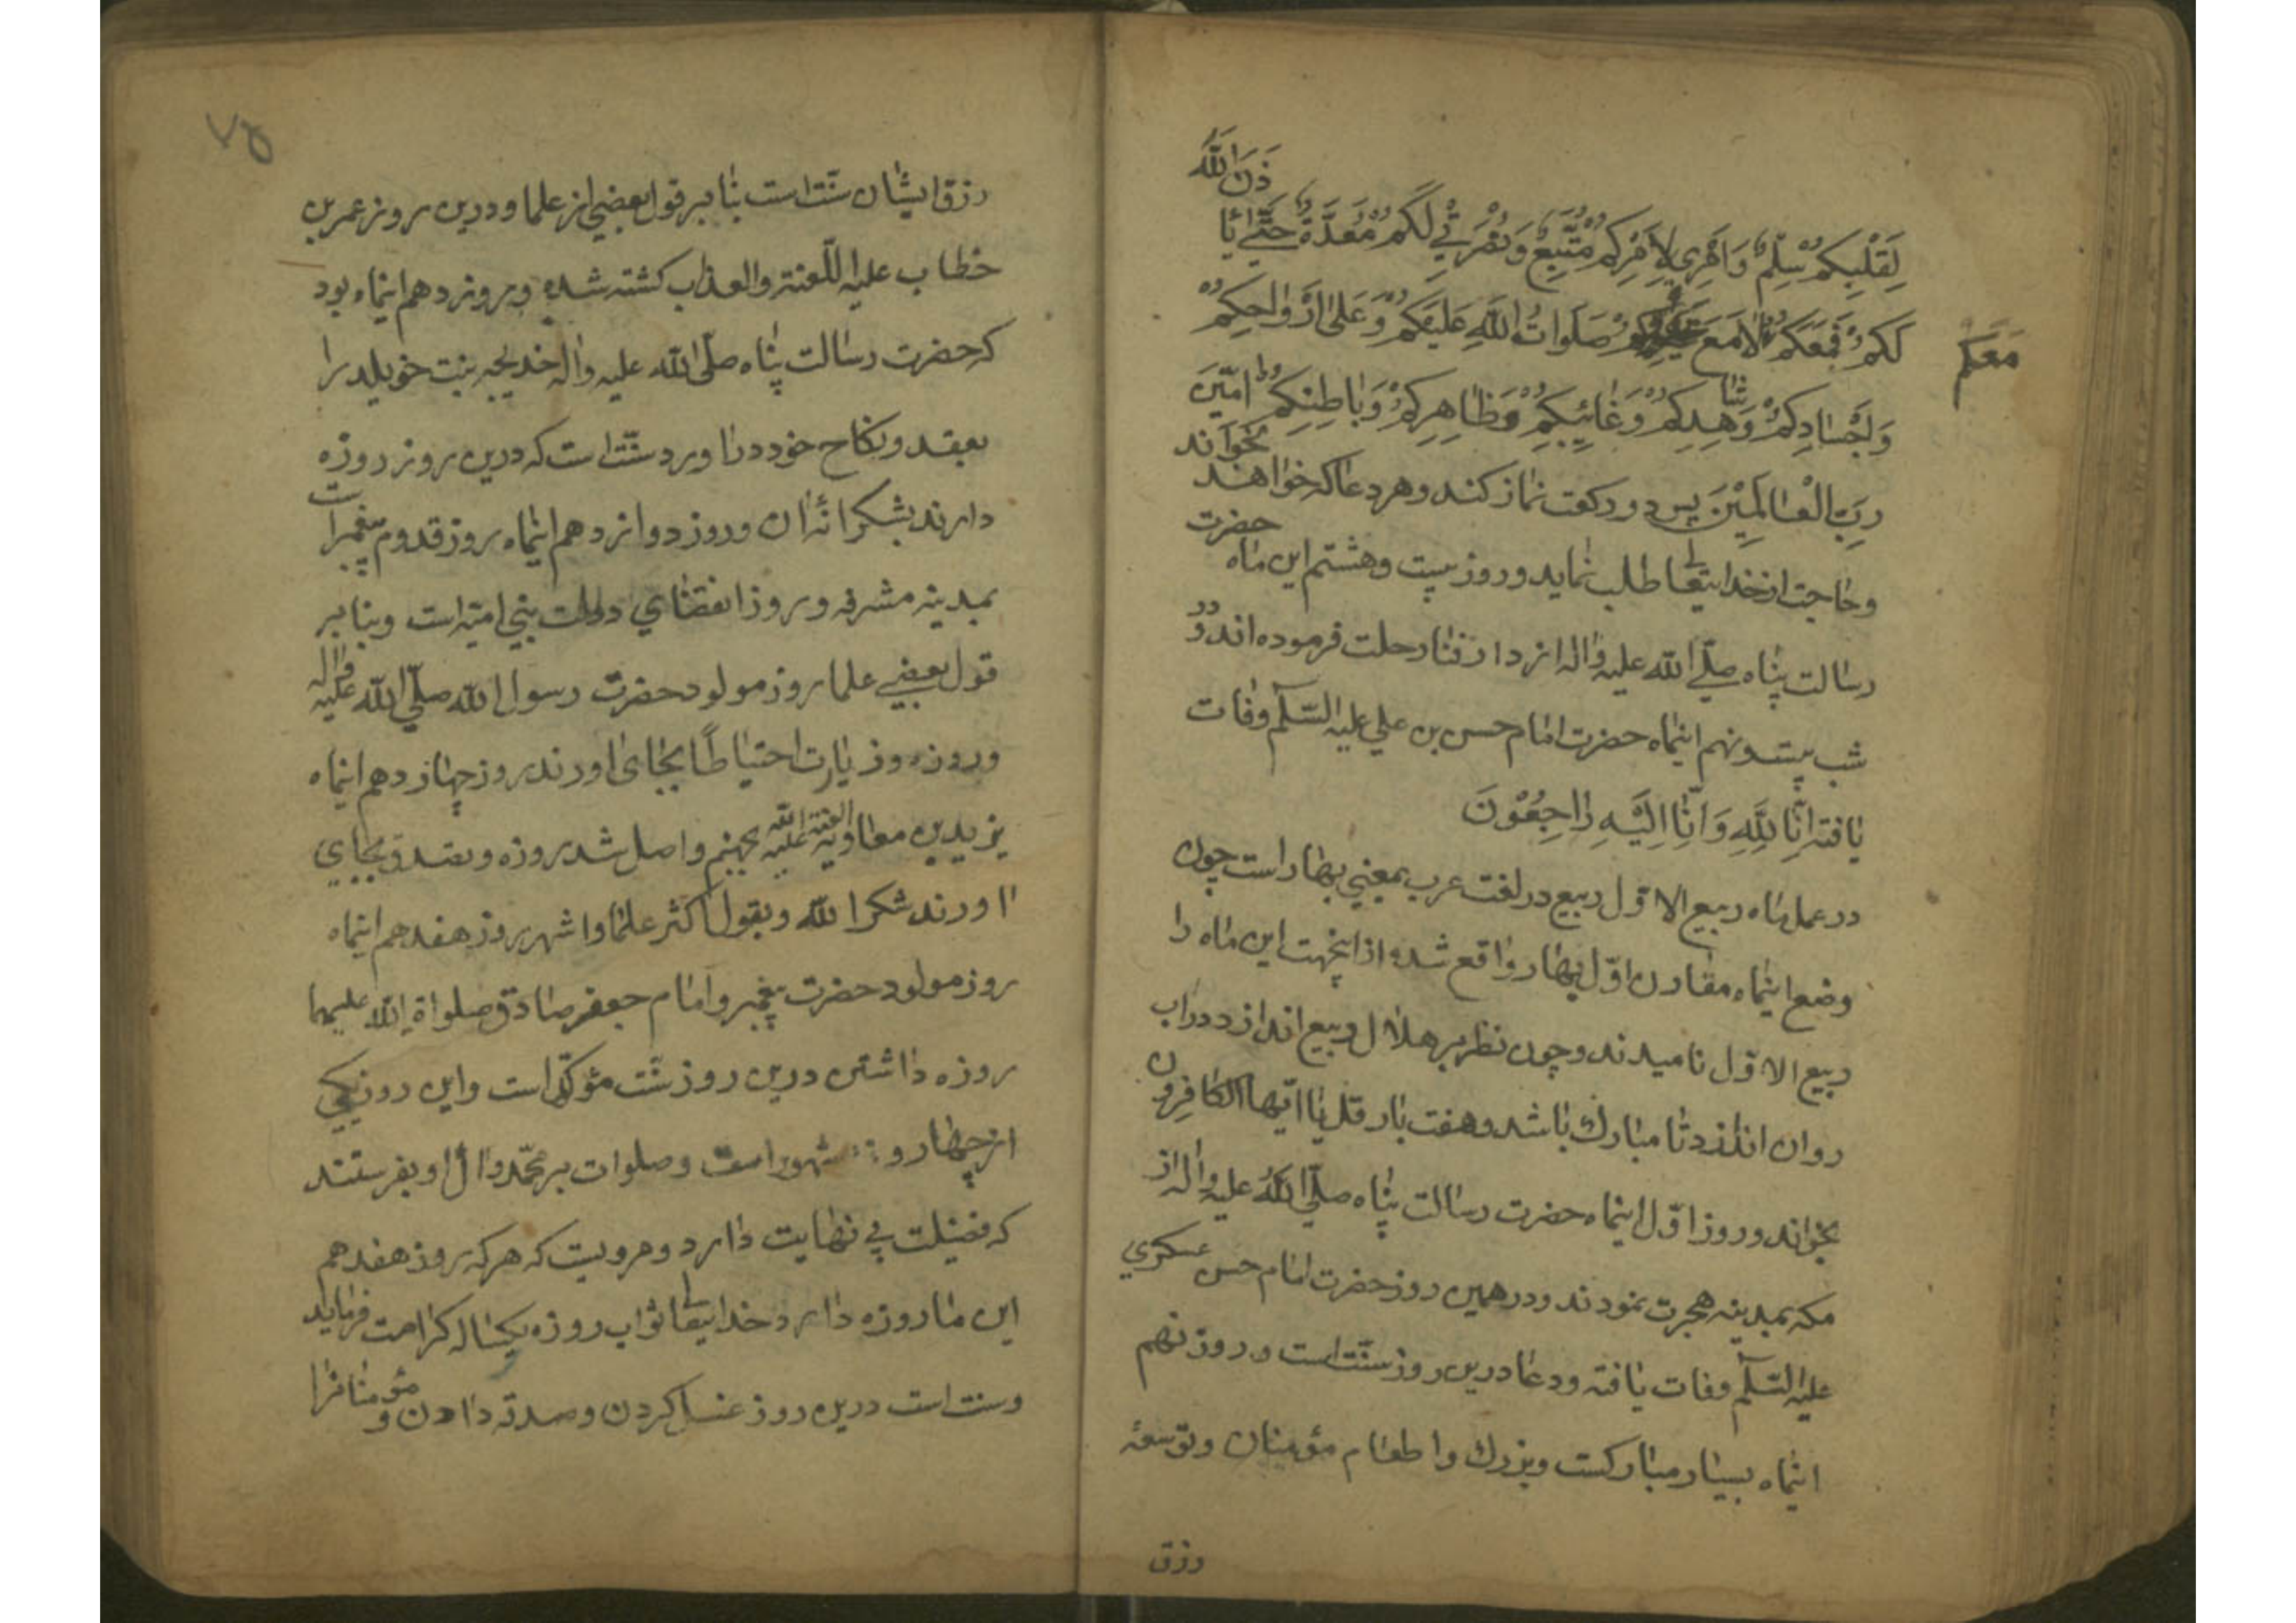 لِقَلْبِكُمْ سِلْمٌ وَاَمْرِي لِاَمْرِكُمْ مُتَّبِعٌ وَنُصْرَتِي لَكُمْ مُعَدَّةٌ حَتّٰي يَا
ذَنَ اللّٰهُ
لَكُمْ فَمَعَكُمْ لَا مَعَ صَلَوَاتُ اللّٰهِ عَلَيْكُمْ وَعَلٰى اَرْوَاحِكُمْ
مَعَكُمْ
وَاَجْسَادِكُمْ وَشَاهِدِكُمْ وَغَائِبِكُمْ وَظَاهِرِكُمْ وَبَاطِنِكُمْ امّينَ
رَبَّ الْعَالَمِيْنَ پس دو ركعت نماز كند و هر دعا كه خواهند بخواند
و حاجت از خدايتعالى طلب نمايد و روز بيست و هشتم اين ماه حضرت
رسالت پناه صلّي الله عليه واله از دار فنا رحلت فرموده اند و در
شب بيست و نهم اينماه حضرت امام حسن بن علي عليه السّلم وفات
يافته اِنَّا لِلّٰهِ وَاِنَّا اِلَيْهِ رَاجِعُوْنَ
در عمل ماه ربيع الاوّل ربيع در لغت عرب بمعني بهار است چون
وضع اينماه مقارن اوّل بهار واقع شده از اينجهت اين ماه را
ربيع الاوّل ناميدند و چون نظر بر هلال ربيع اندازد در اب
روان اندازد تا مبارك باشد و هفت بار قل يا ايّها الكافرون
بخواند و روز اوّل اينماه حضرت رسالت پناه صلّي الله عليه واله از
مكه بمدينه هجرت نمودند و در همين روز حضرت امام حسن عسكري
عليه السّلم وفات يافته و دعا درين روز سنّت است و روز نهم
اينماه بسيار مباركست و بزرك و اطعام مؤمنان و توسعهٔ
رزق
٧٥
رزق ايشان سنّت است بنا بر قول بعضي از علما و درين روز عمر بن
خطاب عليه اللّعنة والعذاب كشته شده و روز دهم اينماه بود
كه حضرت رسالت پناه صلّى الله عليه واله خديجه بنت خويلد را
بعقد و نكاح خود در اورد سنّت است كه درين روز روزه
دارند بشكرانهٔ ان و روز دوازدهم اينماه روز قدوم پيغمبر است
بمدينه مشرفه و روز انقضاي دولت بني اميّه است و بنا بر
قول بعضي علما روز مولود حضرت رسول الله صلّي الله عليه واله
و روزه و زيارت احتياطًا بجاى اورند روز چهاردهم اينماه
يزيد بن معاويه العنة الله عليه بجهنم واصل شد روزه و تصدق بجاي
اورند شكرا لله و بقول اكثر علما و اشهر روز هفدهم اينماه
روز مولود حضرت پيغمبر و امام جعفر صادق صلواة الله عليهما
روزه داشتن درين روز سنّت مؤكّد است و اين روز يكي
از چهار روز مشهور است و صلوات بر محمّد و ال او بفرستند
كه فضيلت بي نهايت دارد و مرويست كه هر كه روز هفدهم
اين ماه روزه دارد خدايتعالى ثواب روزه يكساله كرامت فرمايد
و سنت است درين روز غسل كردن و صدقه دادن و مؤمنانرا